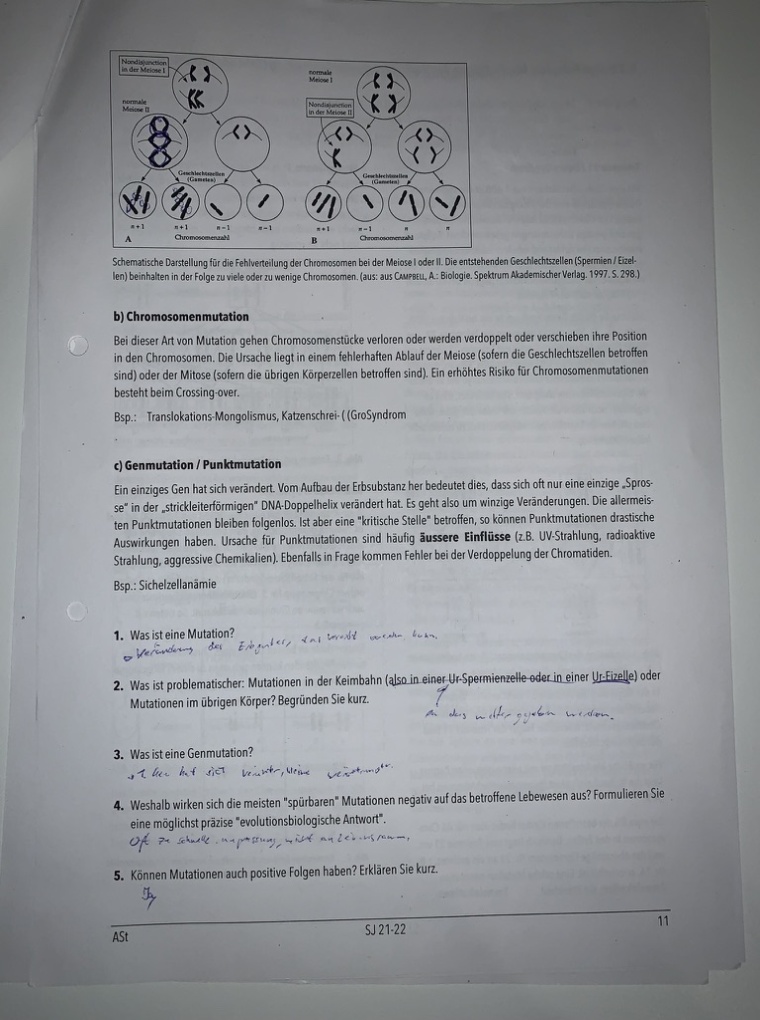 Nondisjunction
in der Meiose I
normale
Meiose I
normale
Meiose II
Nondisjunction
in der Meiose II
Geschlechtszellen
(Gameten)
Geschlechtszellen
(Gameten)
n+1 n+1 n−1 n−1 n+1 n−1 n n
A Chromosomenzahl B Chromosomenzahl
Schematische Darstellung für die Fehlverteilung der Chromosomen bei der Meiose I oder II. Die entstehenden Geschlechtszellen (Spermien / Eizel-
len) beinhalten in der Folge zu viele oder zu wenige Chromosomen. (aus: aus CAMPBELL, A.: Biologie. Spektrum Akademischer Verlag. 1997. S. 298.)
b) Chromosomenmutation
Bei dieser Art von Mutation gehen Chromosomenstücke verloren oder werden verdoppelt oder verschieben ihre Position
in den Chromosomen. Die Ursache liegt in einem fehlerhaften Ablauf der Meiose (sofern die Geschlechtszellen betroffen
sind) oder der Mitose (sofern die übrigen Körperzellen betroffen sind). Ein erhöhtes Risiko für Chromosomenmutationen
besteht beim Crossing-over.
Bsp.: Translokations-Mongolismus, Katzenschrei- ( (GroSyndrom
c) Genmutation / Punktmutation
Ein einziges Gen hat sich verändert. Vom Aufbau der Erbsubstanz her bedeutet dies, dass sich oft nur eine einzige „Spros-
se" in der „strickleiterförmigen" DNA-Doppelhelix verändert hat. Es geht also um winzige Veränderungen. Die allermeis-
ten Punktmutationen bleiben folgenlos. Ist aber eine "kritische Stelle" betroffen, so können Punktmutationen drastische
Auswirkungen haben. Ursache für Punktmutationen sind häufig äussere Einflüsse (z.B. UV-Strahlung, radioaktive
Strahlung, aggressive Chemikalien). Ebenfalls in Frage kommen Fehler bei der Verdoppelung der Chromatiden.
Bsp.: Sichelzellanämie
1. Was ist eine Mutation?
Veränderung des Erbgutes, das vererbt werden kann.
2. Was ist problematischer: Mutationen in der Keimbahn (also in einer Ur-Spermienzelle oder in einer Ur-Eizelle) oder
Mutationen im übrigen Körper? Begründen Sie kurz.
das weitergegeben werden.
3. Was ist eine Genmutation?
1 Gen hat sich verändert, kleine
4. Weshalb wirken sich die meisten "spürbaren" Mutationen negativ auf das betroffene Lebewesen aus? Formulieren Sie
eine möglichst präzise "evolutionsbiologische Antwort".
Oft zu schnelle anpassung, nicht
5. Können Mutationen auch positive Folgen haben? Erklären Sie kurz.
Ja
ASt SJ 21-22 11